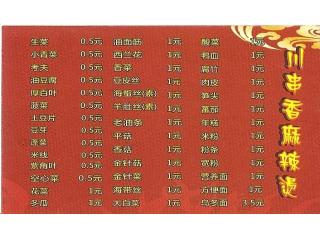 生菜 0.5元
小青菜 0.5元
考夫 0.5元
油豆腐 0.5元
厚白叶 0.5元
菠菜 0.5元
土豆片 0.5元
豆芽 0.5元
蓬菜 0.5元
米线 0.5元
紫角叶 0.5元
空心菜 0.5元
花菜 1元
冬瓜 1元
油面筋 1元
西兰花 1元
香菜 1元
豆皮丝 1元
海蜇丝(素) 1元
羊肚丝(素) 1元
老油条 1元
平菇 1元
香菇 1元
金针菇 1元
金针菜 1元
海带丝 1元
大白菜 1元
酸菜 1元
鸭血 1元
腐竹 1元
肉皮 1元
笋尖 1元
番茄 1元
年糕 1元
米粉 1元
粉条 1元
宽粉 1元
营养面 1元
方便面 1元
乌冬面 3.5元
川串香麻辣烫